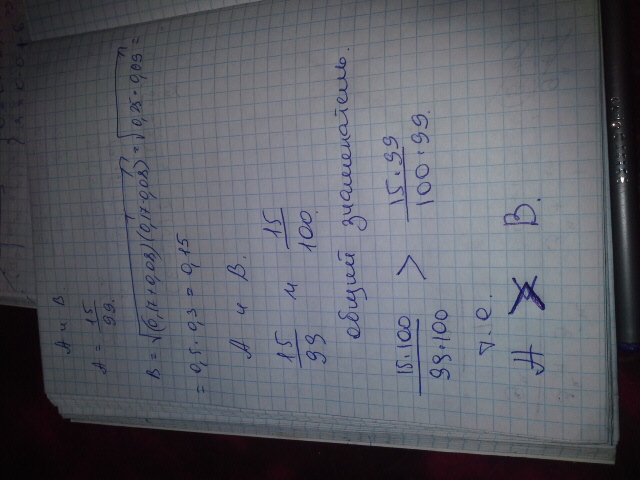 A и B.
A = 15/99.
B = √(0,17+0,08)(0,17-0,08) = √0,25·0,09 =
= 0,5·0,3 = 0,15
A и B.
15/99 и 15/100
общий знаменатель.
15·100/99·100 > 15·99/100·99.
т.е.
A > B.